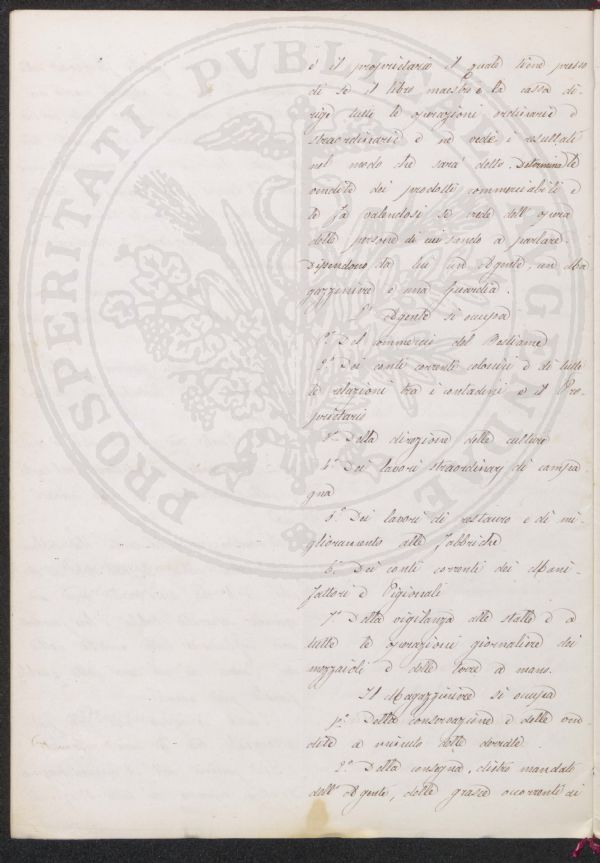 è il proprietario il quale tiene presso
di se il libro maestro e la cassa di-
rige tutte le operazioni ordinarie e
straordinarie e ne vede i resultati
nel modo che sarà detto. Determina le
vendite dei prodotti commerciabili e
le fa valendosi se crede dell'opera
delle persone di cui sando a parlare.
Dipendono da lui un Agente, un Ma
gazziniere e una Guardia.
L'Agente si occupa
1º Del commercio del Bestiame
2º Dei conti correnti colonici e di tutte
le relazioni tra i contadini e il Pro-
prietario
3º Della direzione delle culture
4º Dei lavori straordinarj di campa
gna
5º Dei lavori di restauro e di mi-
glioramento alle fabbriche
6º Dei conti correnti dei Mani-
fattori e Pigionali
7º Della vigilanza alle stalle e a
tutte le operazioni giornaliere dei
mezzaioli e delle terre a mano.
Il Magazziniere si occupa
1º Della conservazione e delle ven-
dite a minuto delle derrate.
2º Della consegna, dietro mandati
dell'Agente, delle grasce occorrenti ai
PROSPERITATI PVBLICAE AVGENDAE